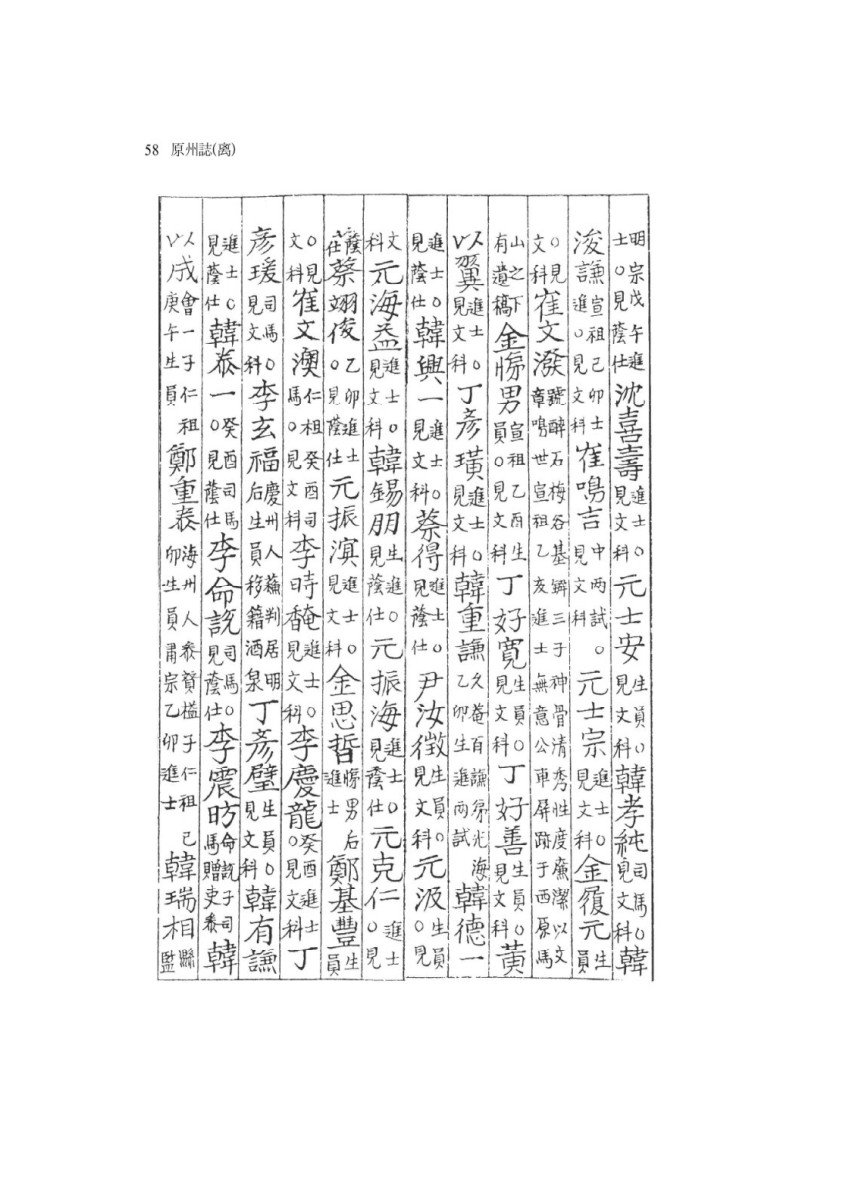 58 原州誌(离)
明宗戊午進士○見蔭仕沈喜壽進士○見文科元士安生員○見文科韓孝純司馬○見文科韓
浚謙宣祖己卯進士○見文科崔鳴吉中兩試○見文科元士宗進士○見文科金履元生員
○見文科崔文潑號醉石梅谷基鐴三子神骨清秀性度廉潔以文章鳴世宣祖乙亥進士無意公車屏跡于西原馬
山之下有遺稿金悌男宣祖乙酉生員○見文科丁好寬生員○見文科丁好善生員○見文科黃
以翼進士○見文科丁彦璜進士○見文科韓重謙久菴百謙弟光海乙卯生進兩試韓德一
進士○見蔭仕韓興一進士○見文科蔡得進士○見蔭仕尹汝徵生員○見文科元汲生員○見
文科元海益進士○見文科韓錫朋生進○見蔭仕元振海進士○見蔭仕元克仁進士○見
蔭仕蔡翊俊乙卯進士○見蔭仕元振溟進士○見文科金思晢悌男后進士鄭基豐生員
○見文科崔文澳仁祖癸酉司馬○見文科李時馣進士○見文科李慶龍癸酉進士○見文科丁
彦瑗司馬○見文科李玄福慶州人蘓判居明后生員移籍酒泉丁彦璧生員○見文科韓有謙
進士○見蔭仕韓泰一癸酉司馬○見蔭仕李命説司馬○見蔭仕李震昉命説子司馬贈吏叅韓
以成會一子仁祖庚午生員鄭重泰海州人叅贊榏子仁祖己卯生員肅宗乙卯進士韓瑞相縣監